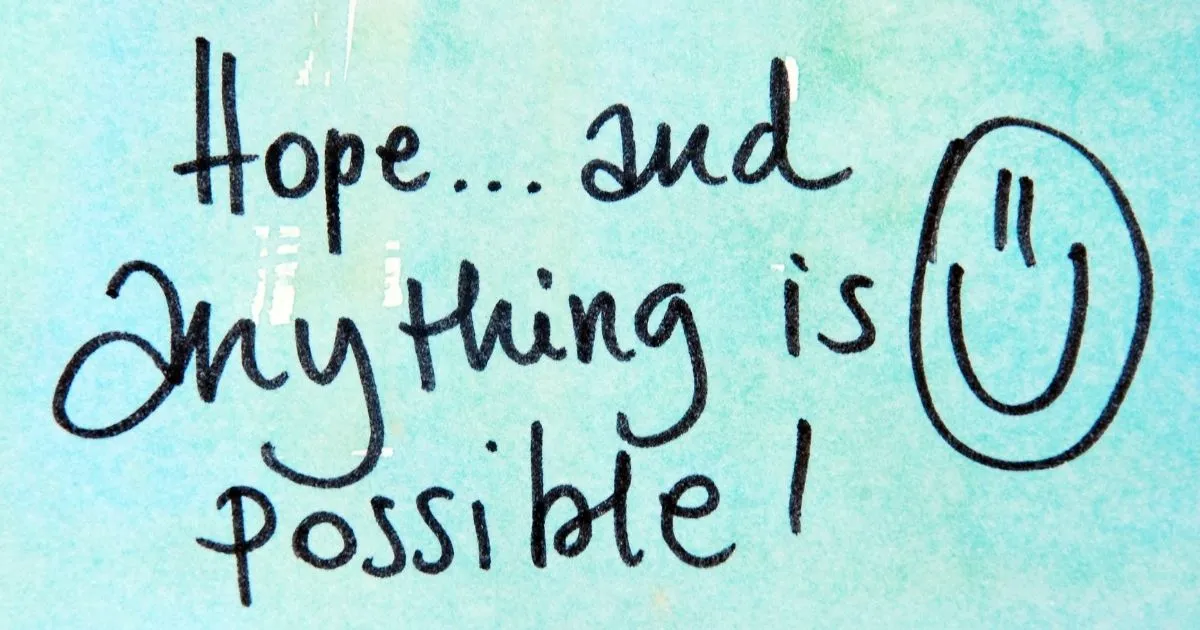 Hope... and
anything is
possible!